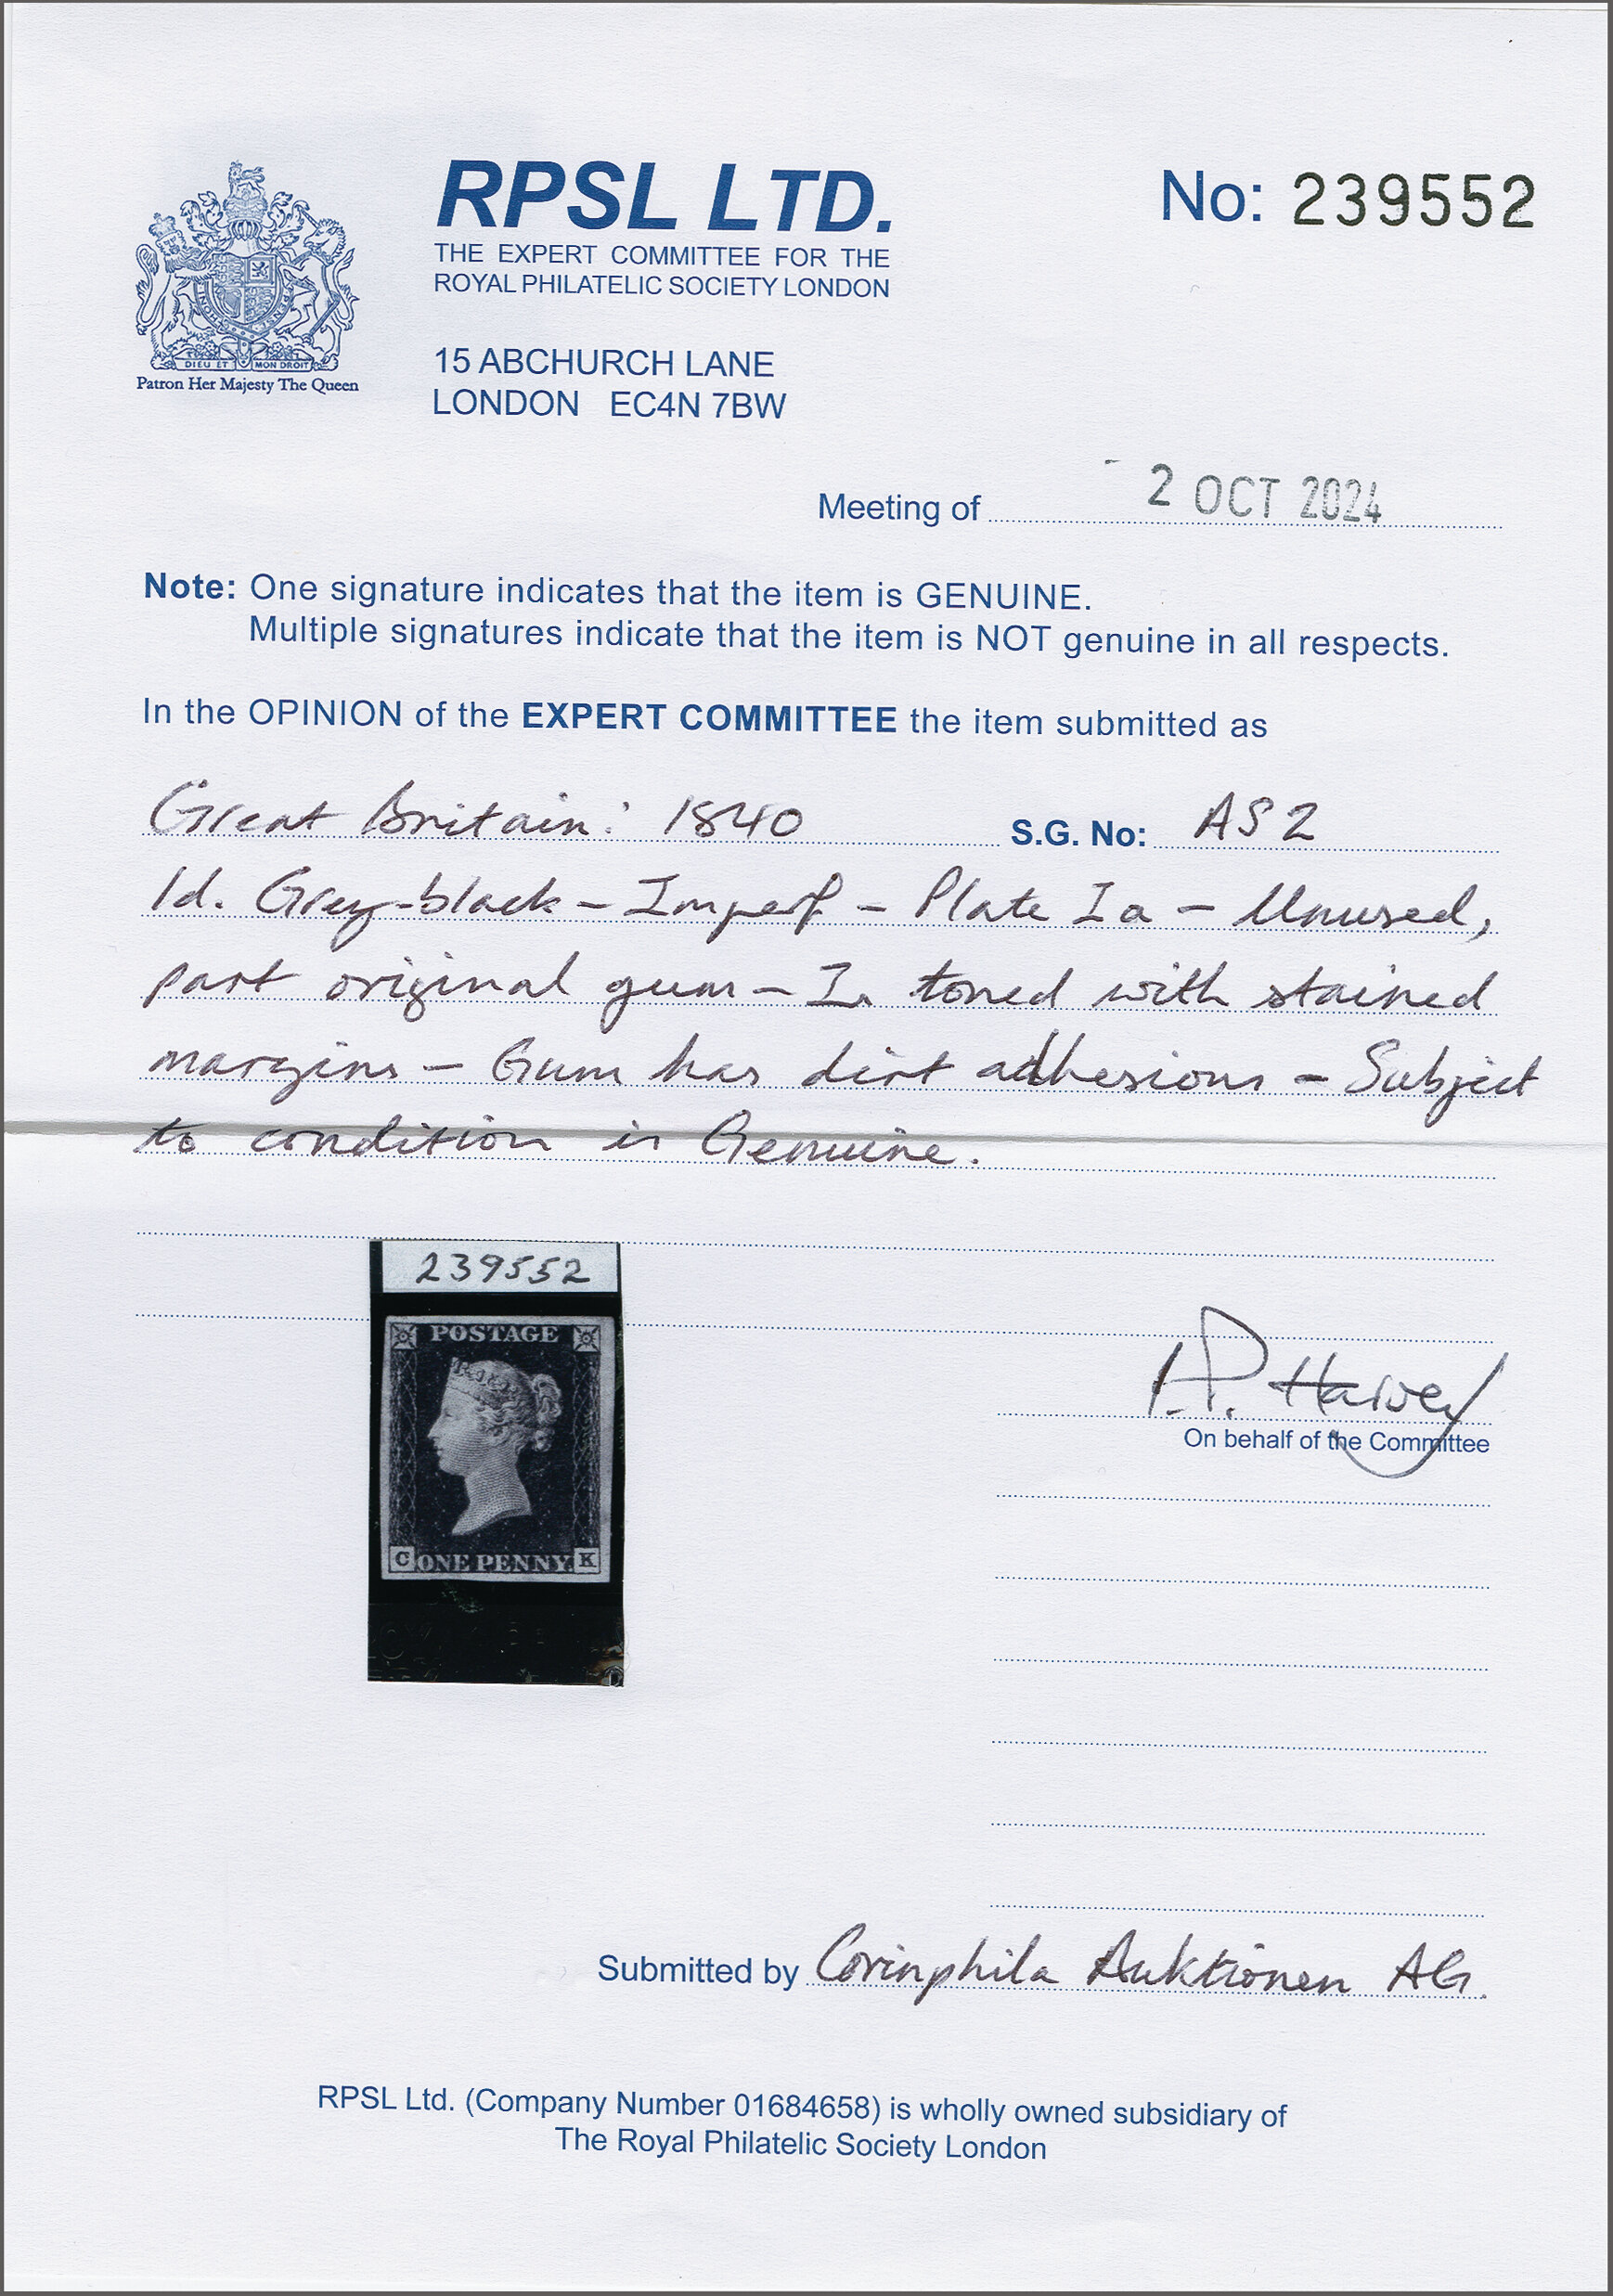 RPSL LTD.
THE EXPERT COMMITTEE FOR THE
ROYAL PHILATELIC SOCIETY LONDON
No: 239552
DIEU ET MON DROIT
Patron Her Majesty The Queen
15 ABCHURCH LANE
LONDON EC4N 7BW
Meeting of - 2 OCT 2024
Note: One signature indicates that the item is GENUINE.
Multiple signatures indicate that the item is NOT genuine in all respects.
In the OPINION of the EXPERT COMMITTEE the item submitted as
Great Britain: 1840 S.G. No: AS2
1d. Grey-black - Imperf - Plate Ia - Unused,
part original gum - Is toned with stained
margins - Gum has dirt adhesions - Subject
to condition is Genuine.
239552
POSTAGE
C ONE PENNY. K
I.P. Harvey
On behalf of the Committee
Submitted by Corinphila Auktionen AG.
RPSL Ltd. (Company Number 01684658) is wholly owned subsidiary of
The Royal Philatelic Society London